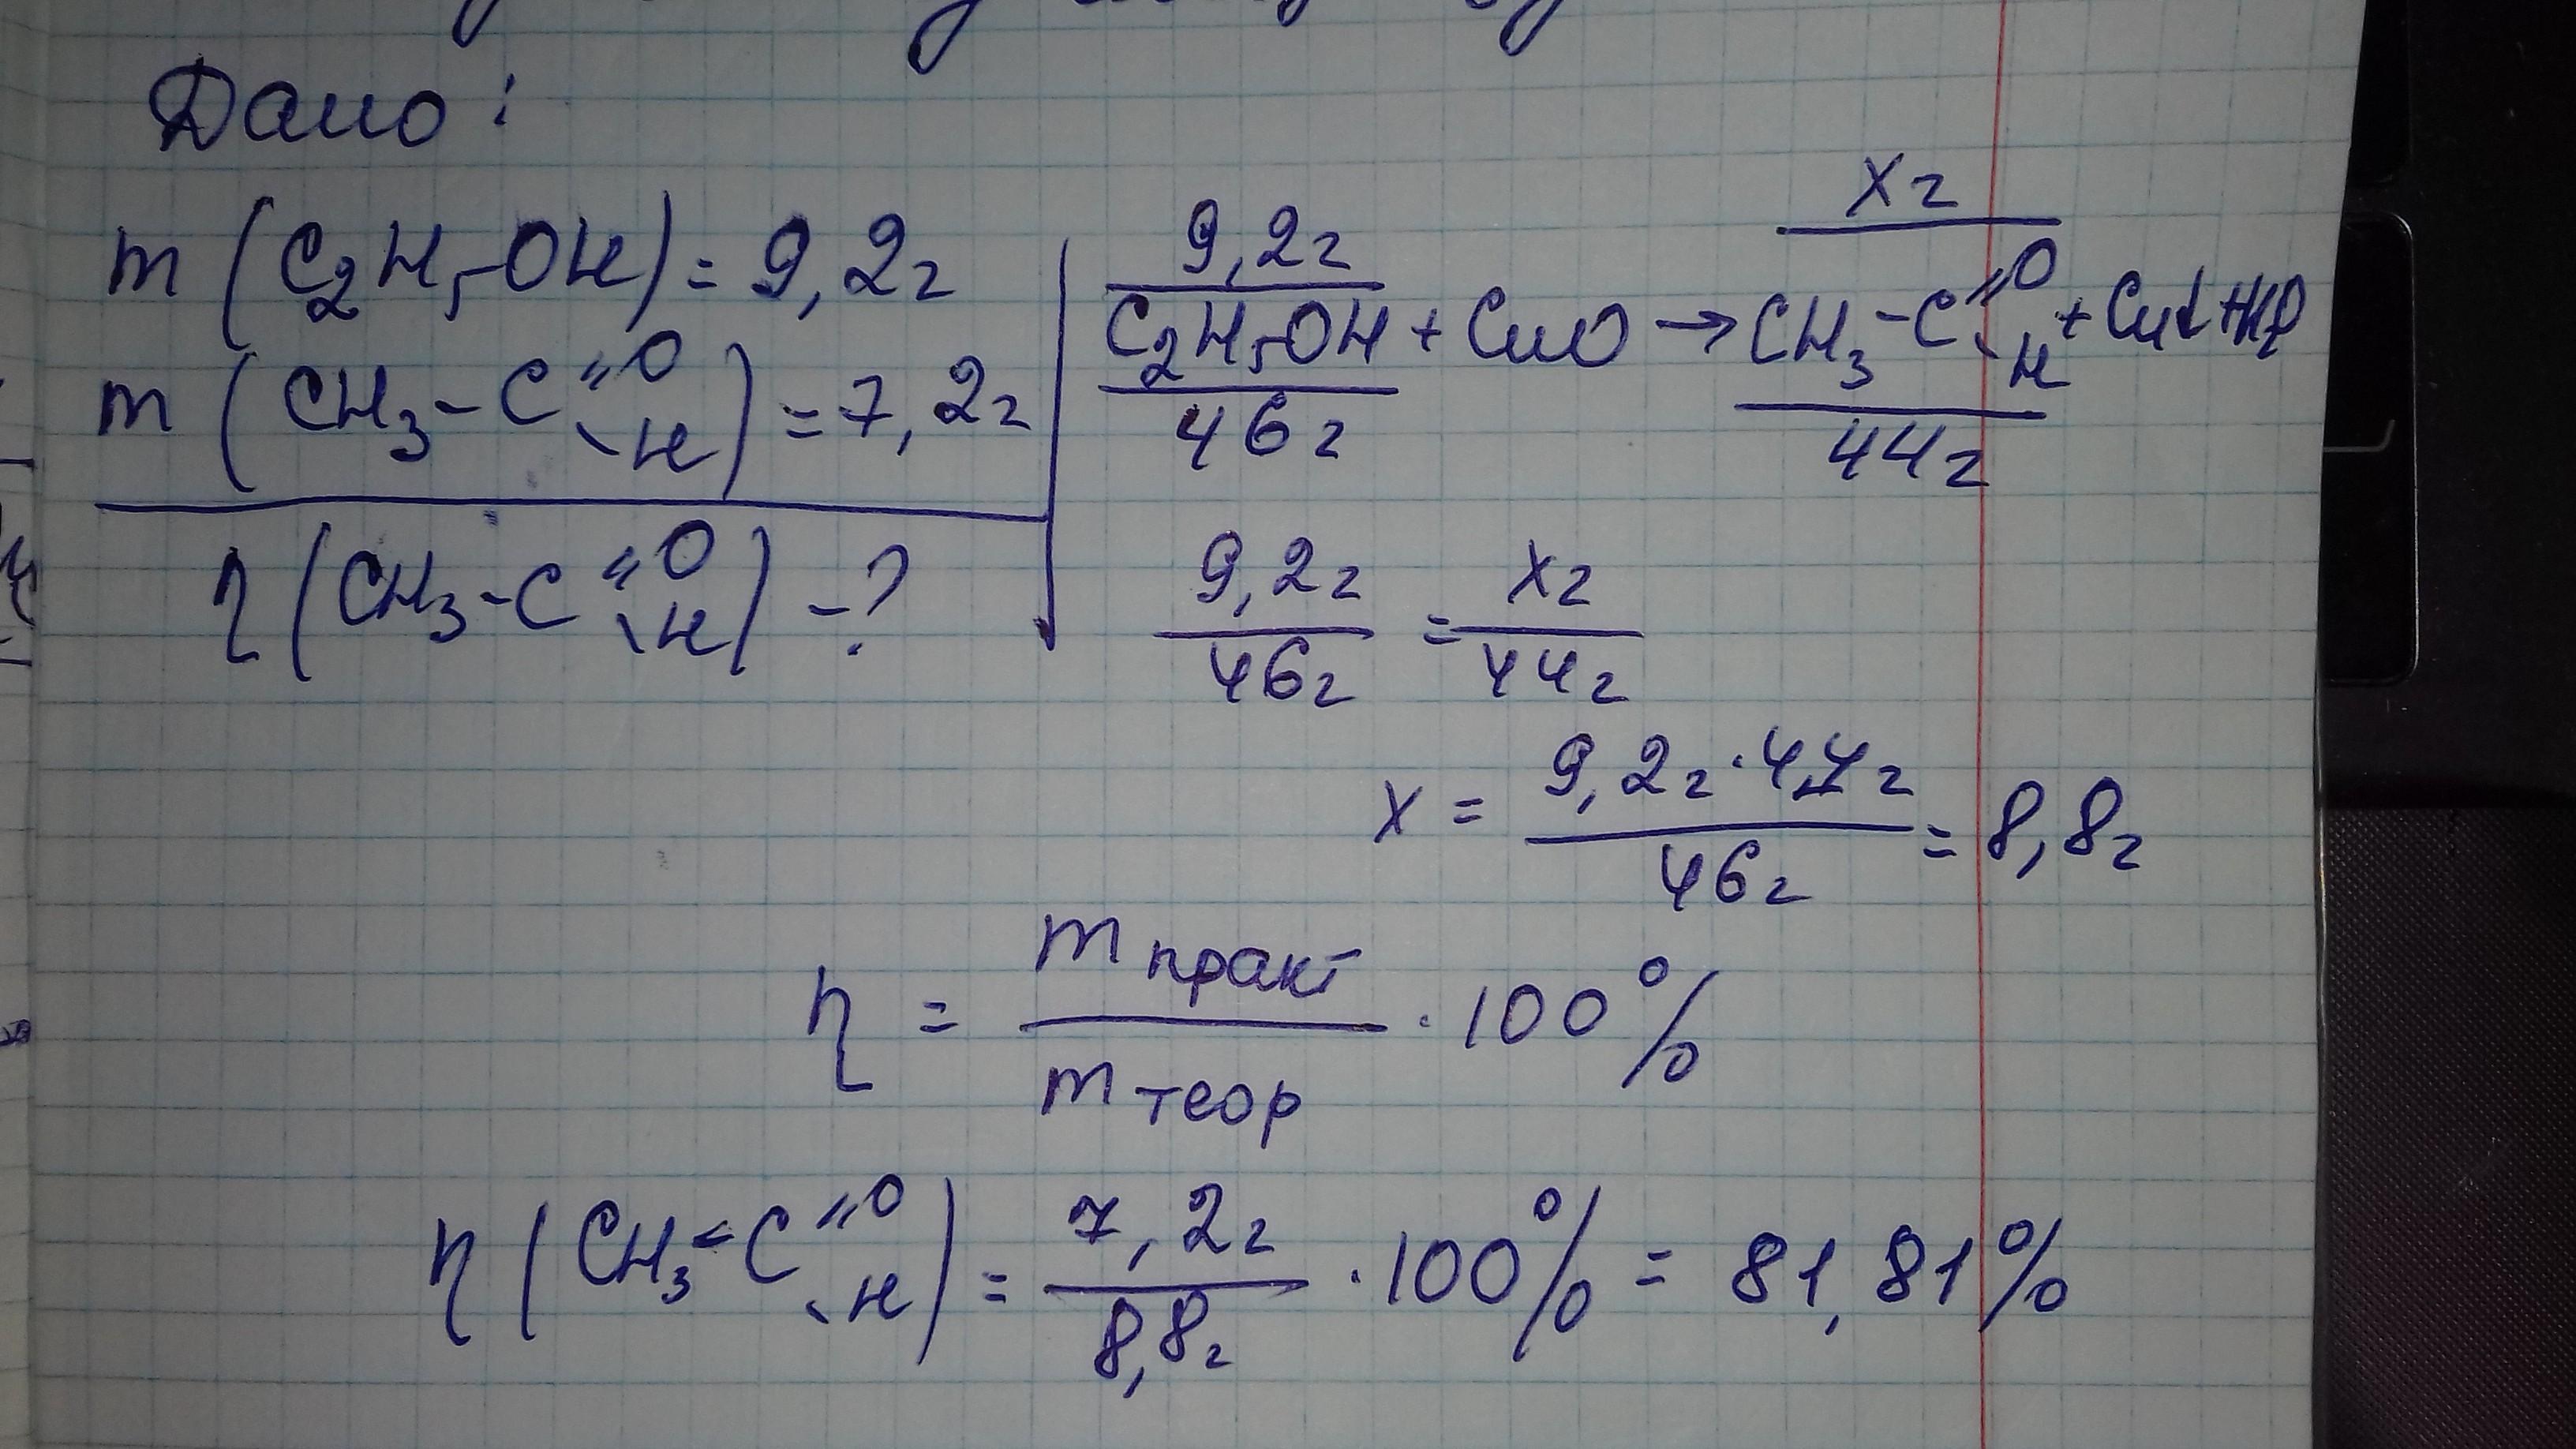 Дано:
m (C₂H₅OH) = 9,2г
m (CH₃-C=O-H) = 7,2г
η (CH₃-C=O-H) -?
9,2г xг
C₂H₅OH + CuO → CH₃-C=O-H + Cu↓ + H₂O
46г 44г
9,2г/46г = xг/44г
x = 9,2г·44г/46г = 8,8г
η = m практ/m теор · 100%
η (CH₃-C=O-H) = 7,2г/8,8г · 100% = 81,81%